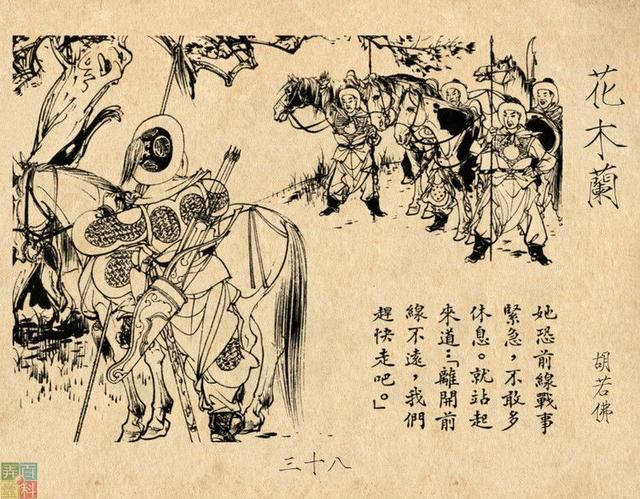 花木蘭
胡若佛
她恐前線戰事
緊急，不敢多
休息。就站起
來道：「離開前
線不遠，我們
趕快走吧。」
三十八
百科
弄堂